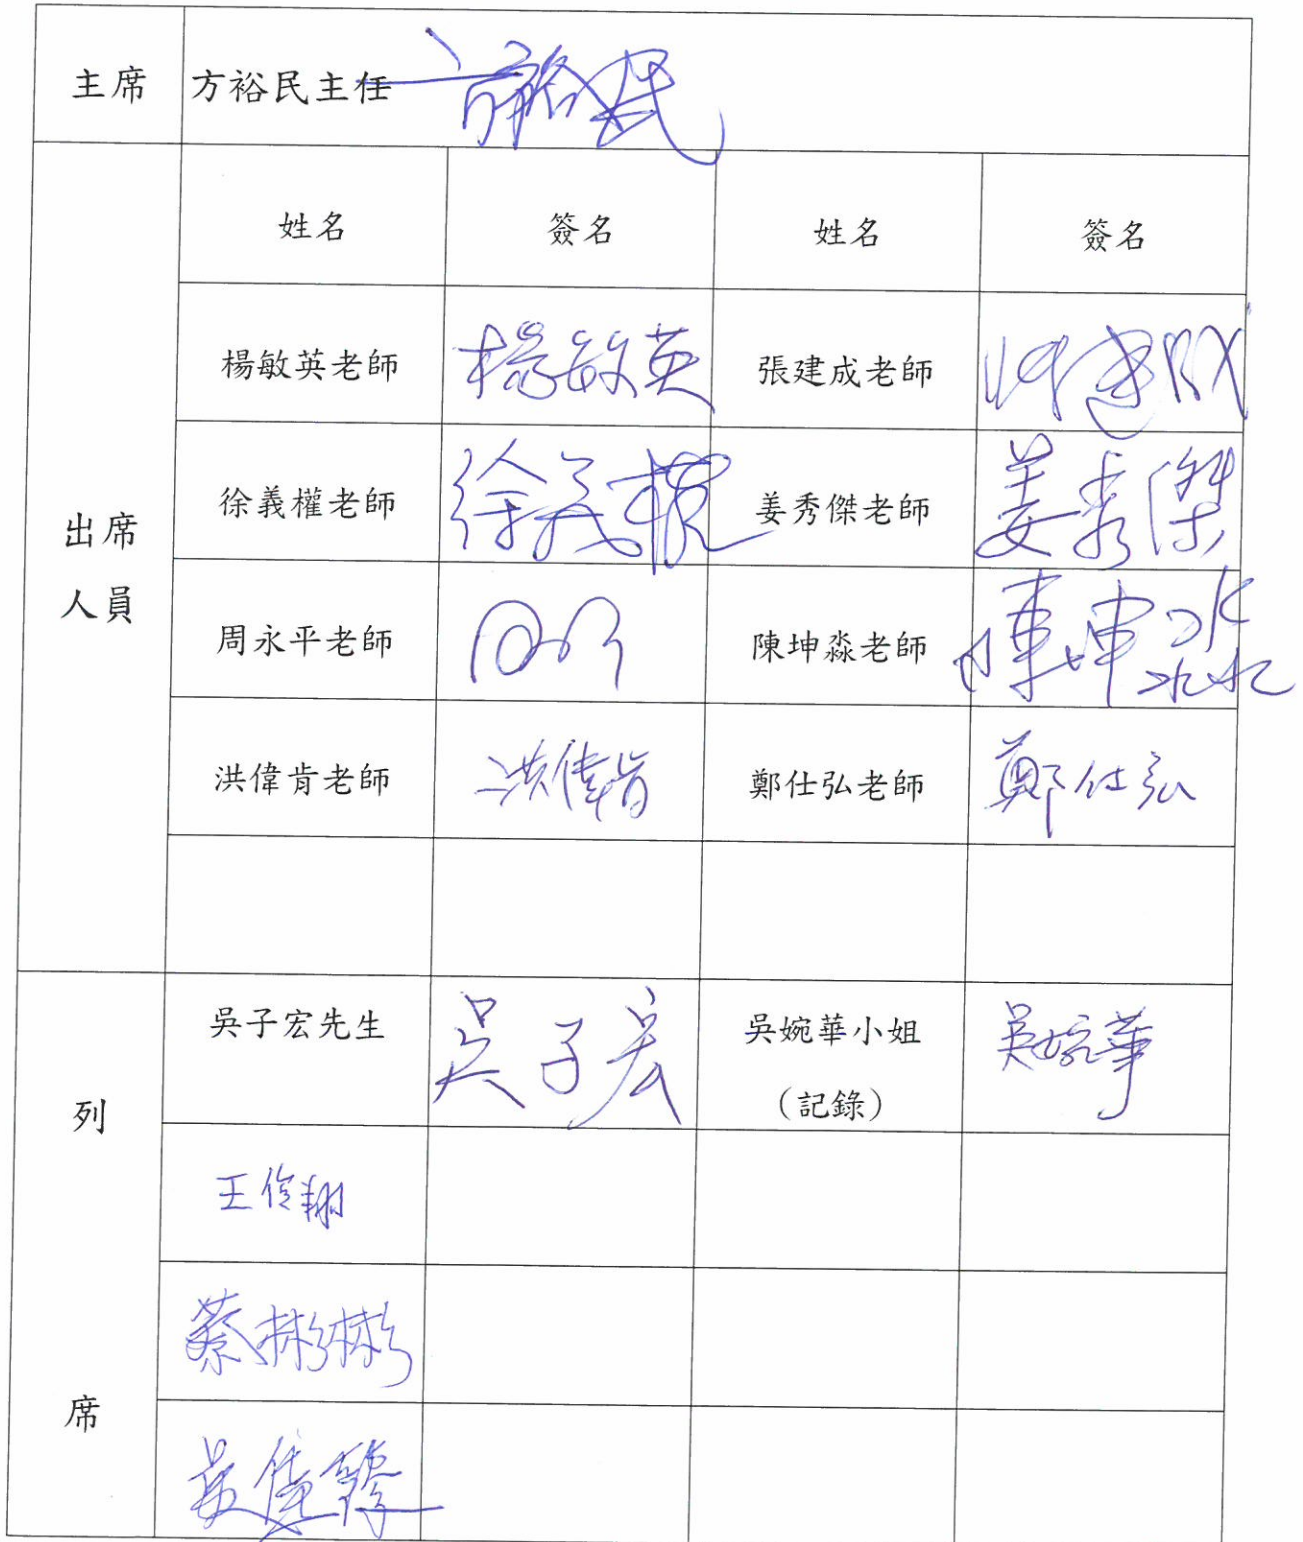 主席 方裕民主任 方裕民
出席
人員
姓名 簽名 姓名 簽名
楊敏英老師 楊敏英 張建成老師 張建成
徐義權老師 徐義權 姜秀傑老師 姜秀傑
周永平老師 陳坤淼老師 陳坤淼
洪偉肯老師 洪偉肯 鄭仕弘老師 鄭仕弘
列
席
吳子宏先生 吳子宏 吳婉華小姐 吳婉華
（記錄）
王俊翔
蔡彬彬
吳